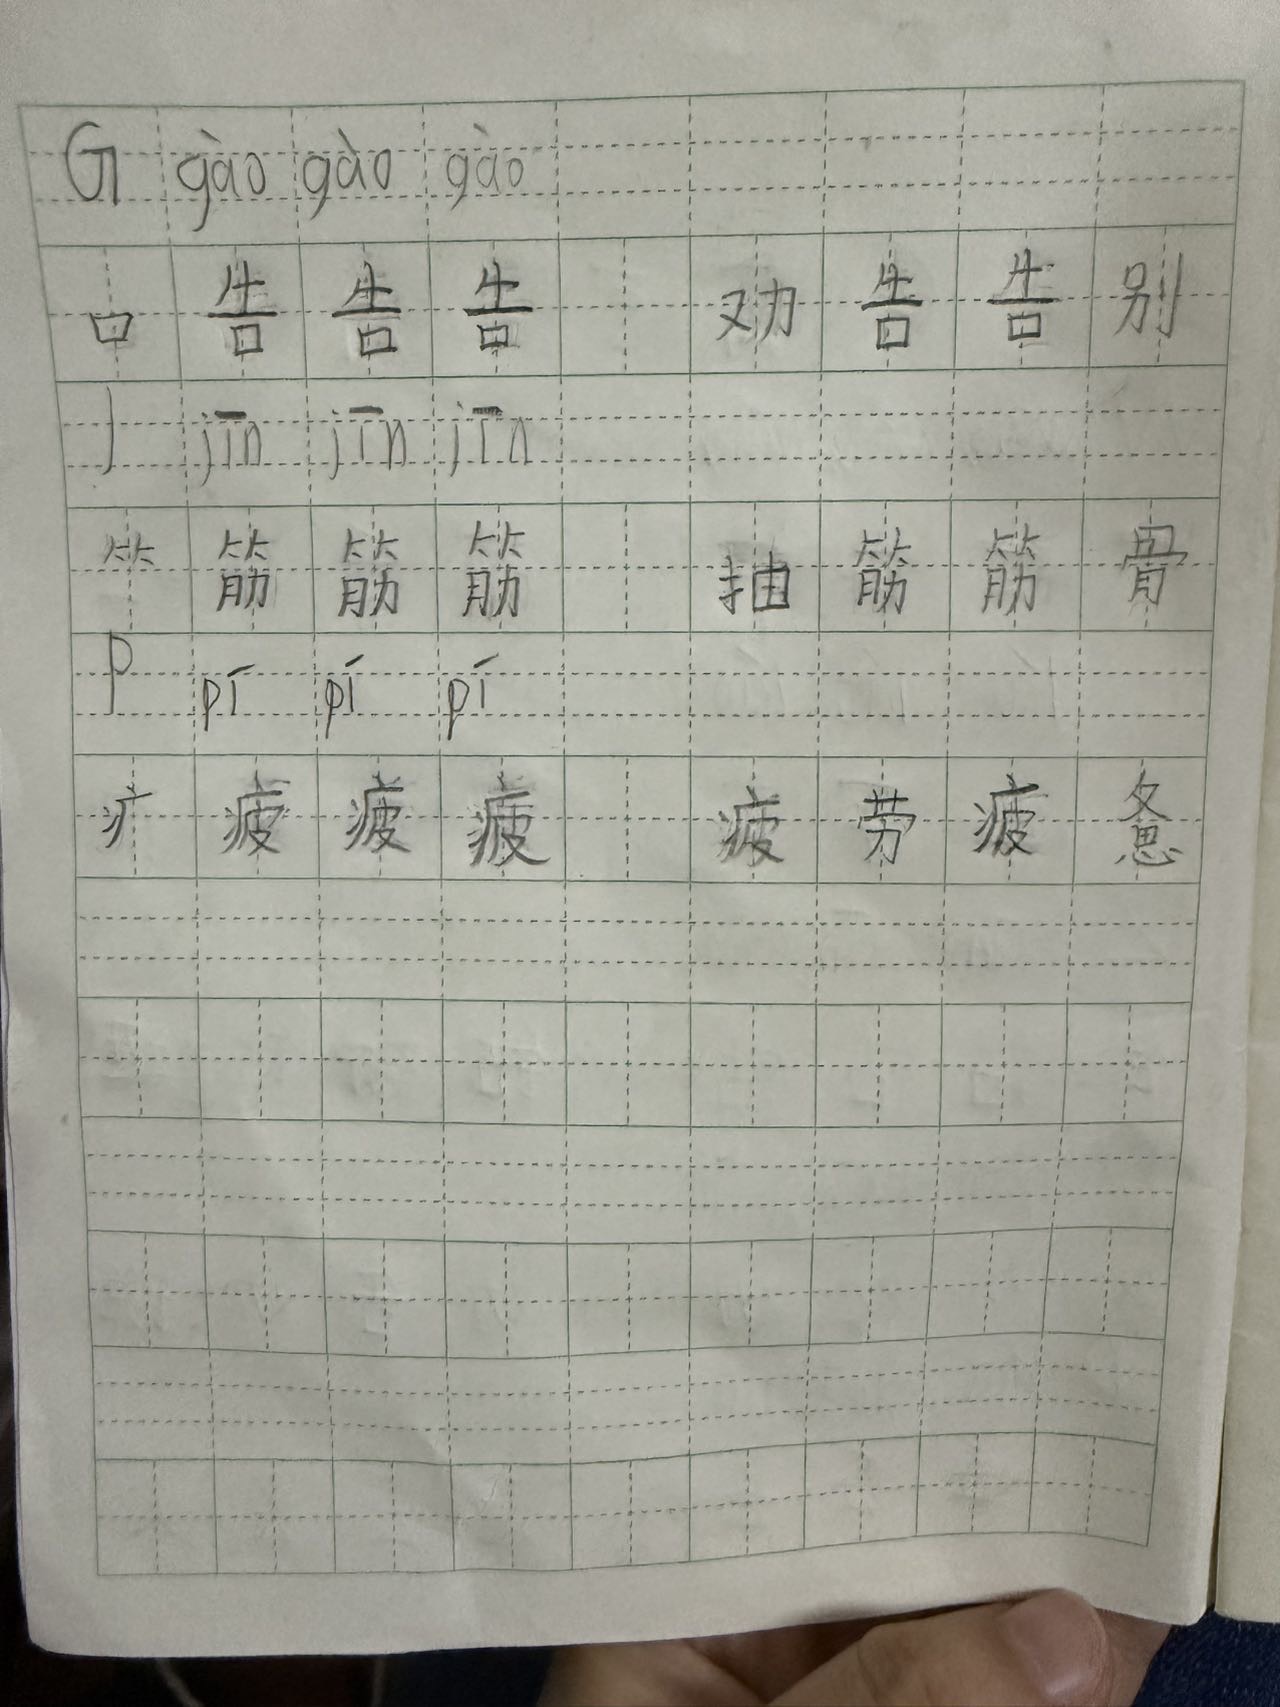 G gào gào gào
口 告 告 告 劝 告 告 别
J jīn jīn jīn
⺮ 筋 筋 筋 抽 筋 筋 骨
P pí pí pí
疒 疲 疲 疲 疲 劳 疲 惫